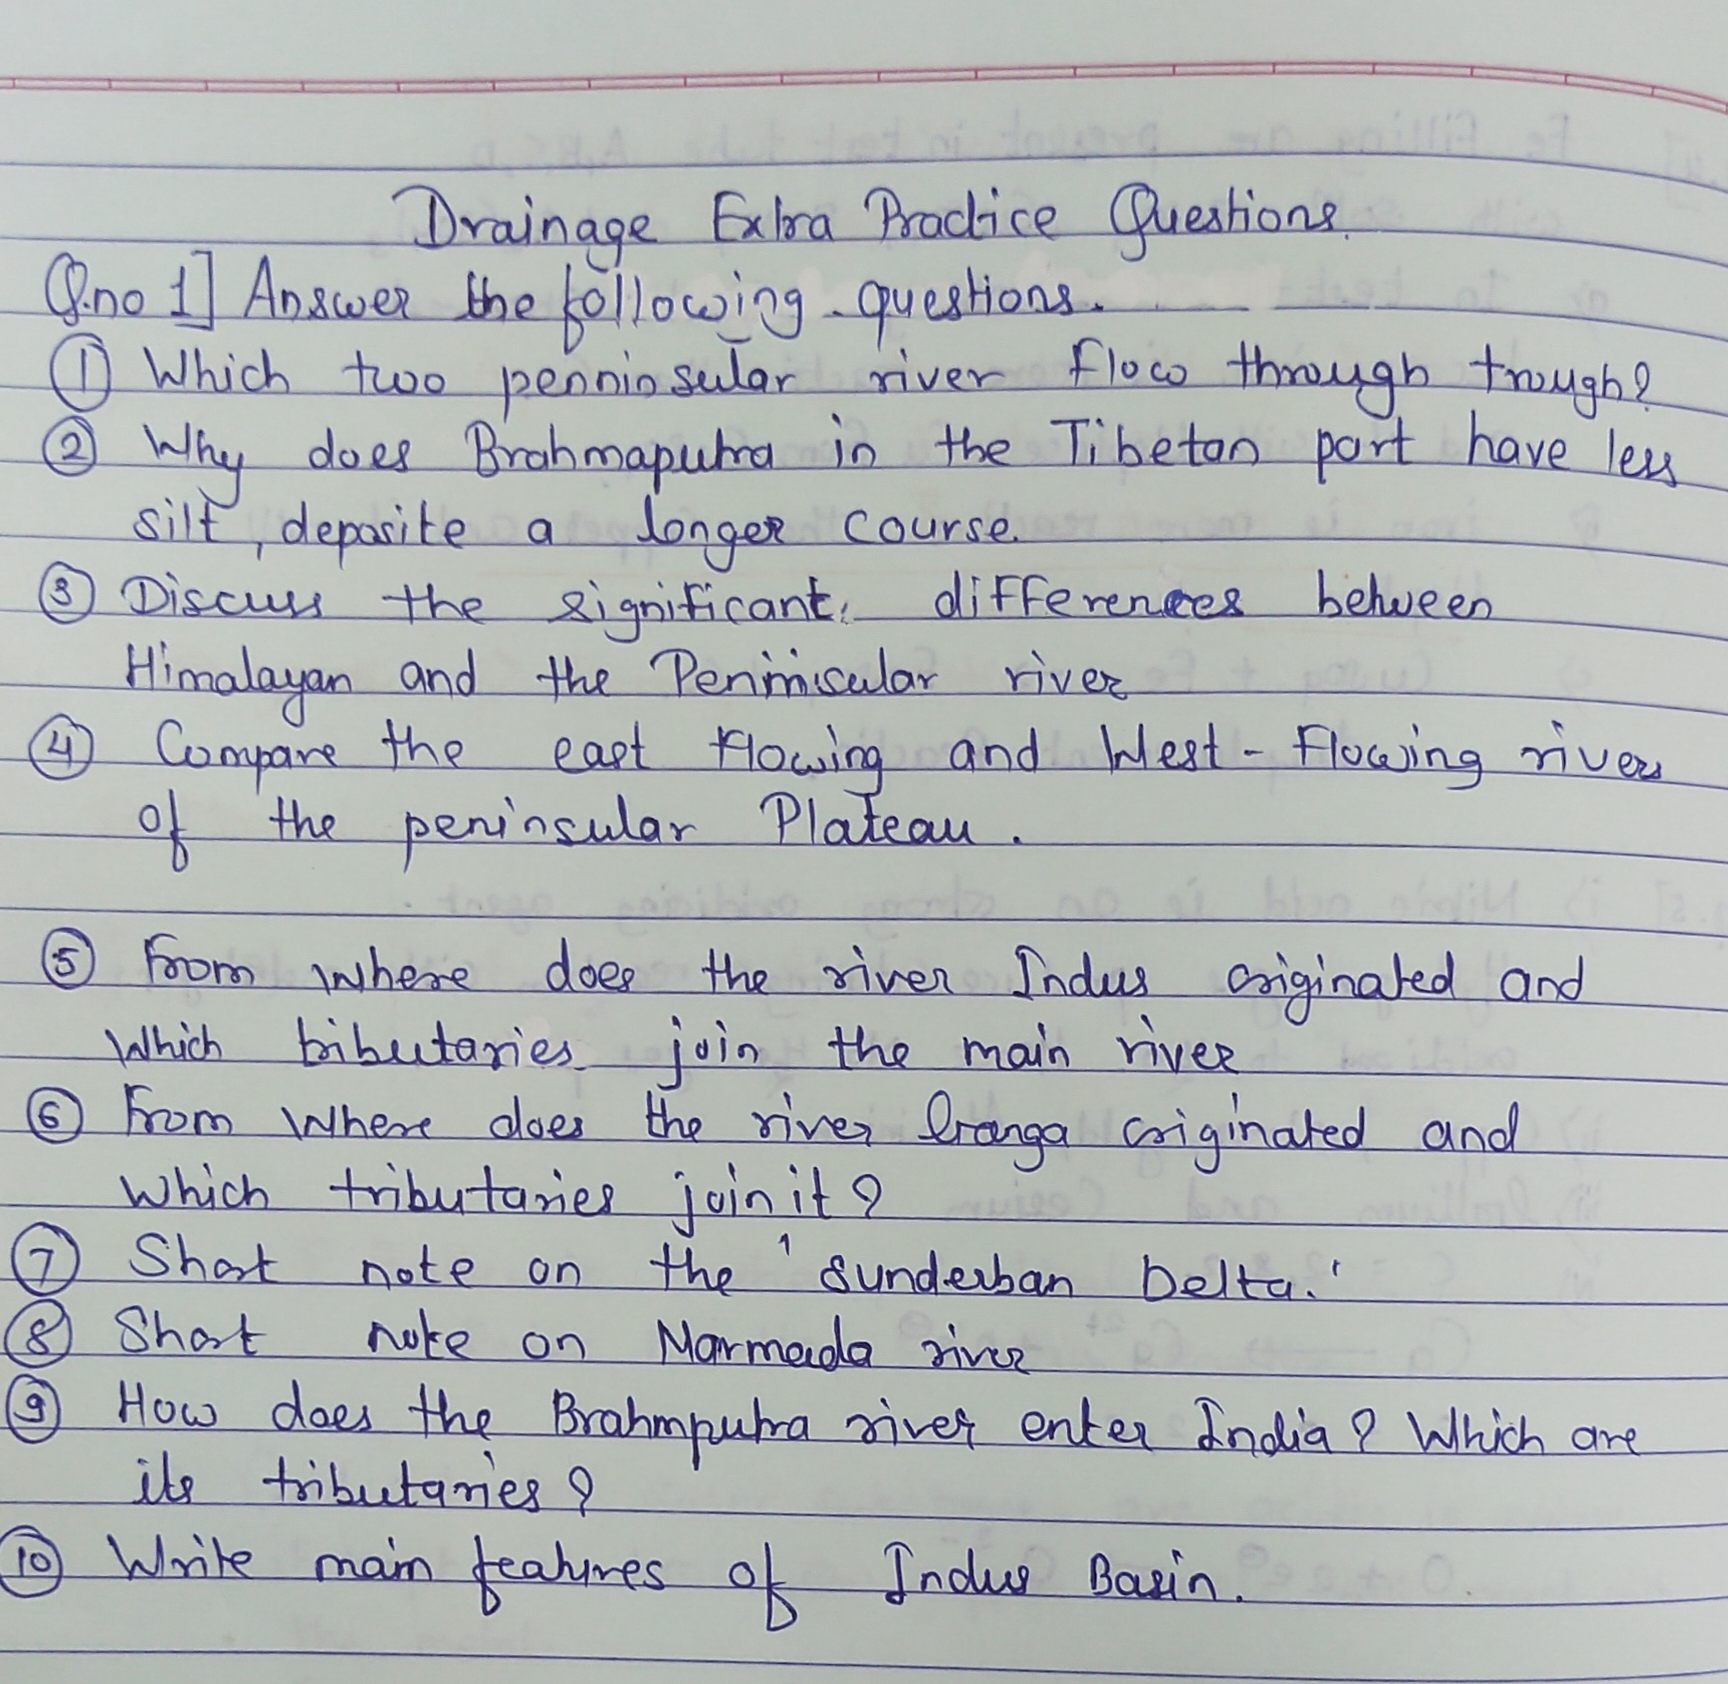 Drainage Extra Practice Questions.
Q.no 1] Answer the following questions.
① Which two penninsular river flow through trough?
② Why does Brahmaputra in the Tibetan part have less
silt, deposite a longer course.
③ Discuss the significant differences between
Himalayan and the Peninsular river
④ Compare the east flowing and West-Flowing rivers
of the peninsular Plateau.
⑤ From where does the river Indus originated and
Which tributaries join the main river
⑥ From Where does the river Ganga originated and
Which tributaries join it?
⑦ Short note on the 'Sunderban Delta.'
⑧ Short note on Narmada river
⑨ How does the Brahmputra river enter India? Which are
its tributaries?
⑩ Write main features of Indus Basin.